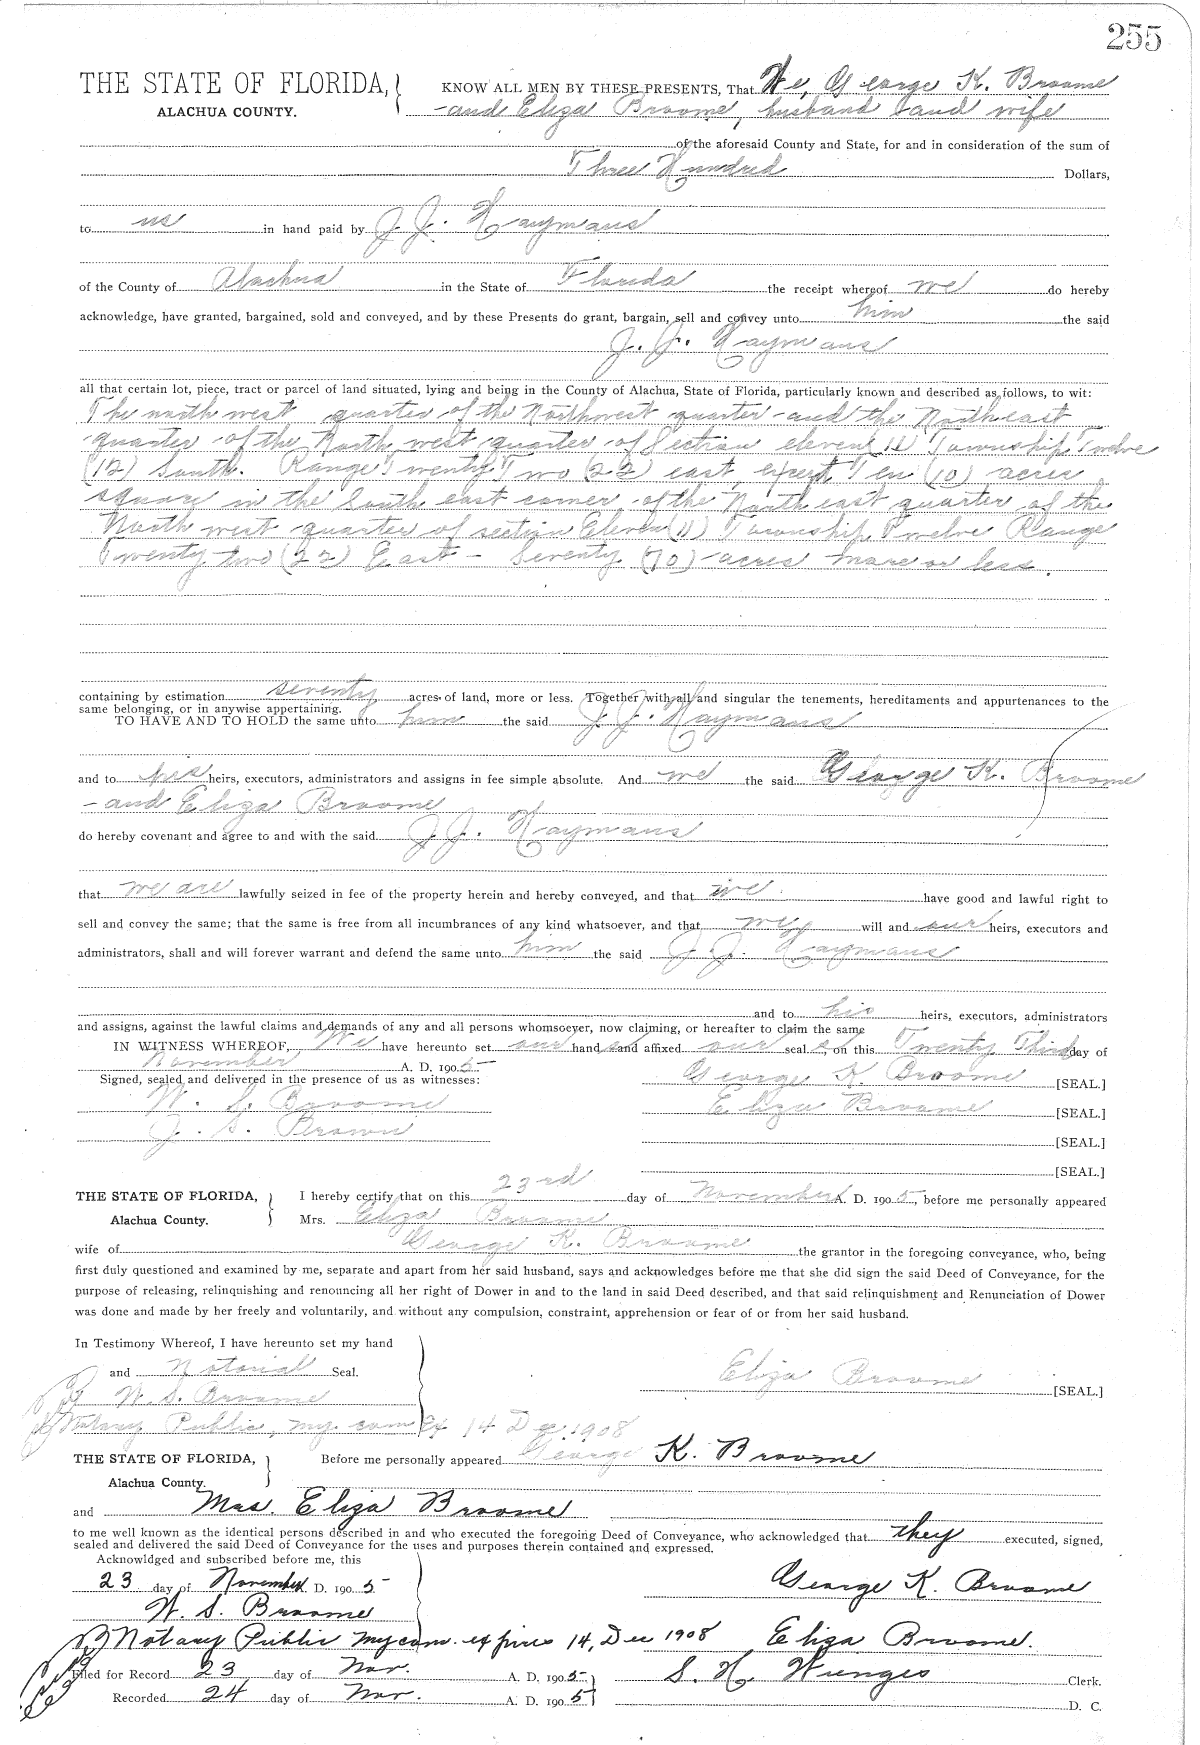 255
THE STATE OF FLORIDA, KNOW ALL MEN BY THESE PRESENTS, That We, George K. Broome
ALACHUA COUNTY. and Eliza Broome, husband and wife
of the aforesaid County and State, for and in consideration of the sum of
Three Hundred Dollars,
to us in hand paid by J. J. Haymans
of the County of Alachua in the State of Florida the receipt whereof we do hereby
acknowledge, have granted, bargained, sold and conveyed, and by these Presents do grant, bargain, sell and convey unto him the said
J. J. Haymans
all that certain lot, piece, tract or parcel of land situated, lying and being in the County of Alachua, State of Florida, particularly known and described as follows, to wit:
The north west quarter of the Northwest quarter and the Northeast
quarter of the North west quarter of Section eleven 11 Township Twelve
(12) South. Range Twenty Two (22) east, except Ten (10) acres
square in the South east corner of the North east quarter of the
North west quarter of section Eleven (11) Township Twelve Range
Twenty two (22) East - Seventy (70) acres more or less.
containing by estimation seventy acres of land, more or less. Together with all and singular the tenements, hereditaments and appurtenances to the
same belonging, or in anywise appertaining.
TO HAVE AND TO HOLD the same unto him the said J. J. Haymans
and to his heirs, executors, administrators and assigns in fee simple absolute. And we the said George K. Broome
and Eliza Broome
do hereby covenant and agree to and with the said J. J. Haymans
that we are lawfully seized in fee of the property herein and hereby conveyed, and that we have good and lawful right to
sell and convey the same; that the same is free from all incumbrances of any kind whatsoever, and that we will and our heirs, executors and
administrators, shall and will forever warrant and defend the same unto him the said J. J. Haymans
and to his heirs, executors, administrators
and assigns, against the lawful claims and demands of any and all persons whomsoever, now claiming, or hereafter to claim the same
IN WITNESS WHEREOF, We have hereunto set our hand s and affixed our seal s, on this Twenty Third day of
November A. D. 1905
Signed, sealed and delivered in the presence of us as witnesses: George K. Broome [SEAL.]
W. S. Broome Eliza Broome [SEAL.]
J. S. Brown [SEAL.]
[SEAL.]
THE STATE OF FLORIDA, I hereby certify that on this 23rd day of November A. D. 1905, before me personally appeared
Alachua County. Mrs. Eliza Broome
wife of George K. Broome the grantor in the foregoing conveyance, who, being
first duly questioned and examined by me, separate and apart from her said husband, says and acknowledges before me that she did sign the said Deed of Conveyance, for the
purpose of releasing, relinquishing and renouncing all her right of Dower in and to the land in said Deed described, and that said relinquishment and Renunciation of Dower
was done and made by her freely and voluntarily, and without any compulsion, constraint, apprehension or fear of or from her said husband.
In Testimony Whereof, I have hereunto set my hand
and Notarial Seal. Eliza Broome [SEAL.]
W. S. Broome
Notary Public, my. com Ex 14 Dec. 1908
THE STATE OF FLORIDA, Before me personally appeared George K. Broome
Alachua County.
and Mrs. Eliza Broome
to me well known as the identical persons described in and who executed the foregoing Deed of Conveyance, who acknowledged that they executed, signed,
sealed and delivered the said Deed of Conveyance for the uses and purposes therein contained and expressed.
Acknowldged and subscribed before me, this
23 day of November A. D. 1905 George K. Broome
W. S. Broome
Notary Public my com. expires 14, Dec 1908 Eliza Broome.
Filed for Record 23 day of Nov. A. D. 1905 S. H. Wienges Clerk.
Recorded 24 day of Nov. A. D. 1905 D. C.